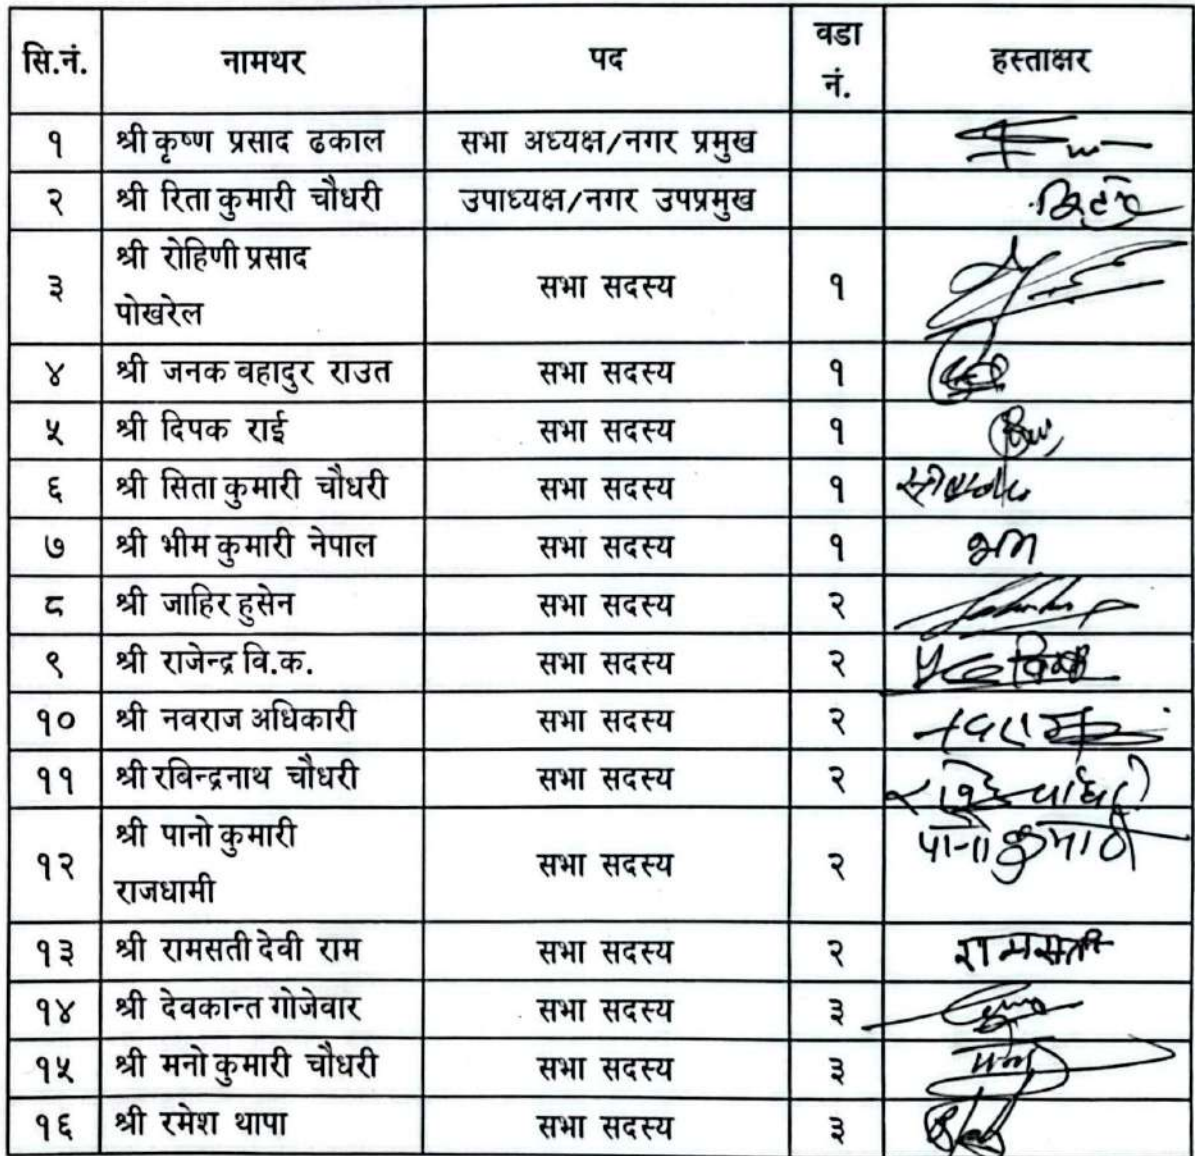 सि.नं. नामथर पद वडा नं. हस्ताक्षर
१ श्री कृष्ण प्रसाद ढकाल सभा अध्यक्ष/नगर प्रमुख
२ श्री रिता कुमारी चौधरी उपाध्यक्ष/नगर उपप्रमुख
३ श्री रोहिणी प्रसाद पोखरेल सभा सदस्य १
४ श्री जनक बहादुर राउत सभा सदस्य १
५ श्री दिपक राई सभा सदस्य १
६ श्री सिता कुमारी चौधरी सभा सदस्य १
७ श्री भीम कुमारी नेपाल सभा सदस्य १
८ श्री जाहिर हुसेन सभा सदस्य २
९ श्री राजेन्द्र वि.क. सभा सदस्य २
१० श्री नवराज अधिकारी सभा सदस्य २
११ श्री रबिन्द्रनाथ चौधरी सभा सदस्य २
१२ श्री पानो कुमारी राजधामी सभा सदस्य २ पानो कुमारी
१३ श्री रामसती देवी राम सभा सदस्य २ रामसती
१४ श्री देवकान्त गोजेवार सभा सदस्य ३
१५ श्री मनो कुमारी चौधरी सभा सदस्य ३
१६ श्री रमेश थापा सभा सदस्य ३